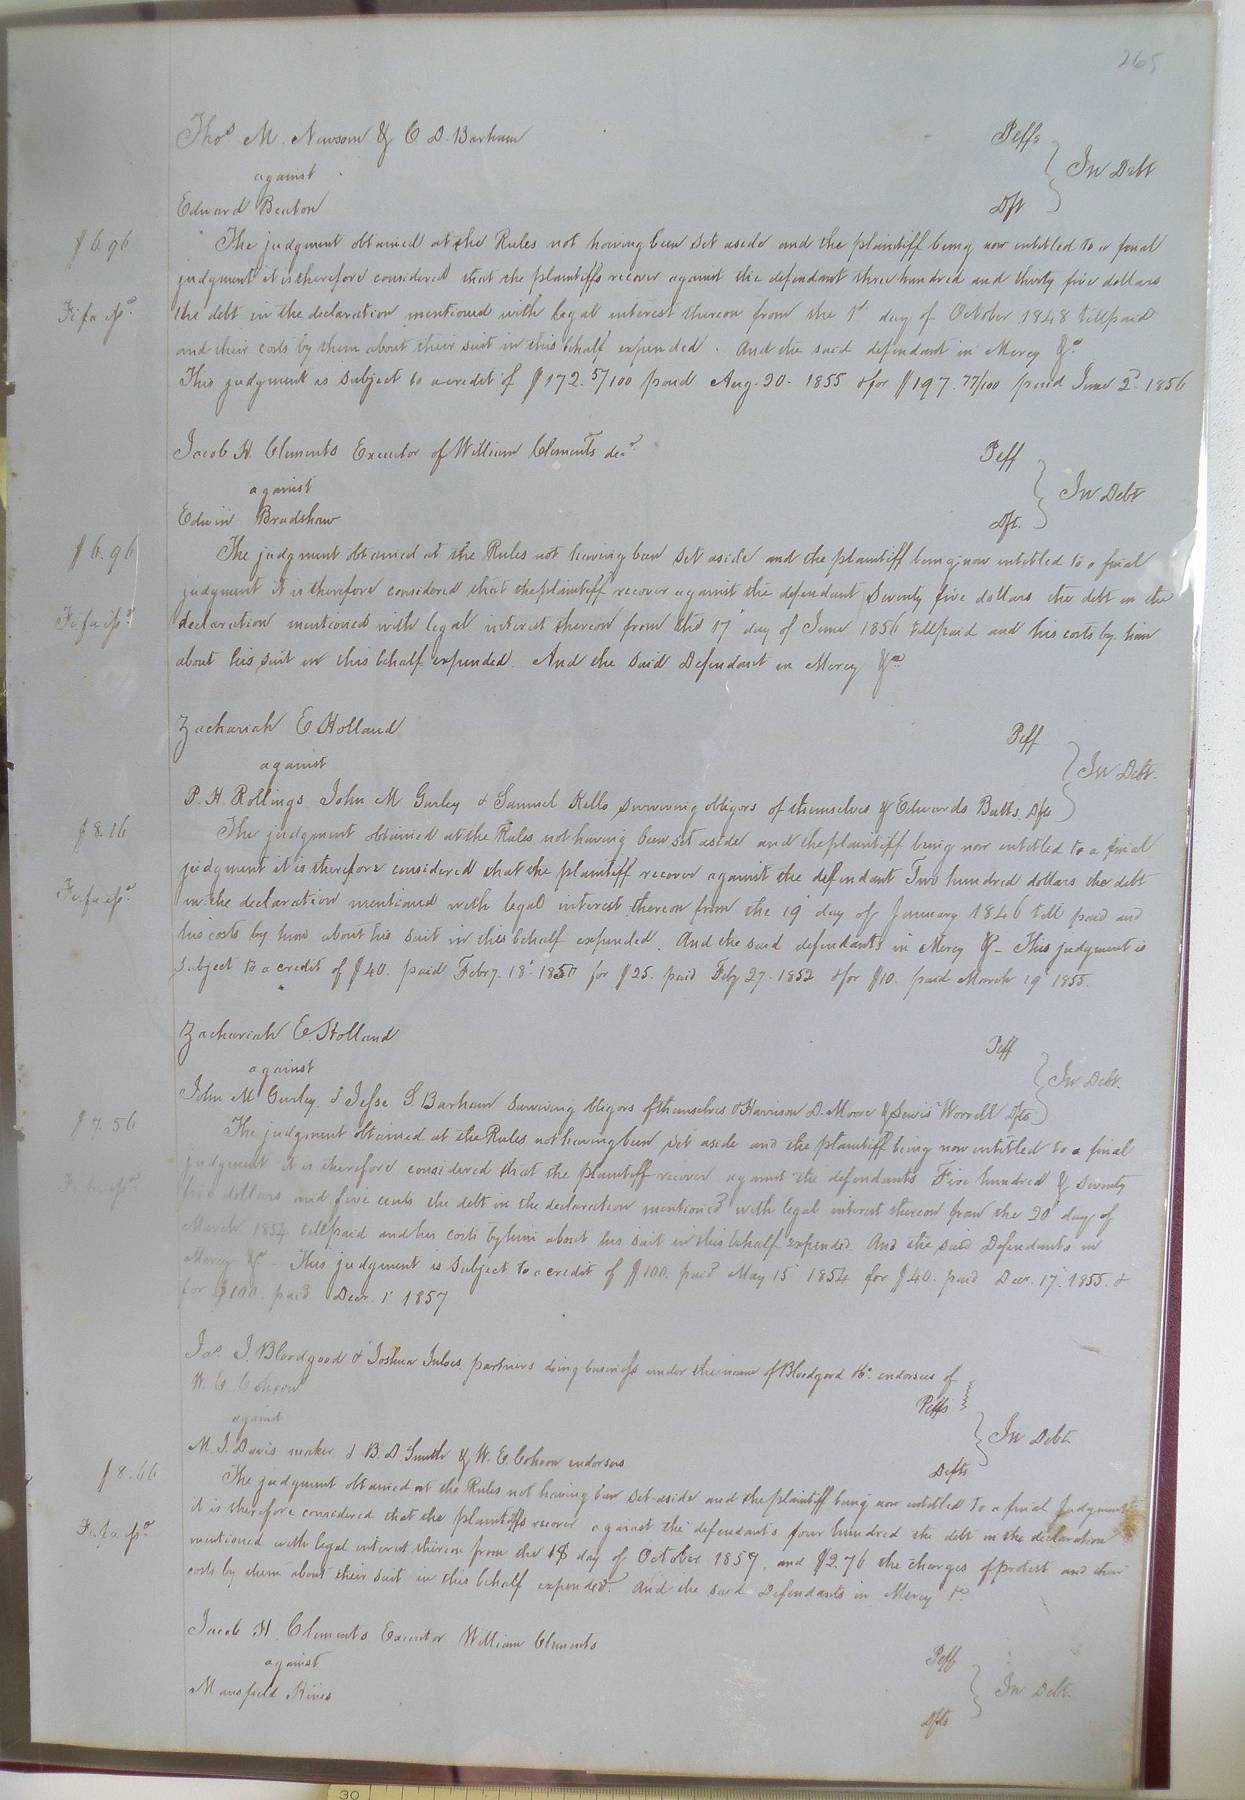 265
Thos M. Newsom & C. D. Barham Pltffs
against } In Debt
Edward Beaton Dft
$6.96
The judgment obtained at the Rules not having been set aside and the plaintiff being now entitled to a final
judgment it is therefore considered that the plaintiffs recover against the defendant three hundred and thirty five dollars
Fi fa issd
the debt in the declaration mentioned with legal interest thereon from the 1st day of October 1848 till paid
and their costs by them about their suit in this behalf expended. And the said defendant in Mercy &c
This judgment is subject to a credit of $172.57/100 paid Aug. 20. 1855 & for $197.77/100 paid June 2d 1856
Jacob H. Clements Executor of William Clements decd Pltff
against } In Debt
Edwin Bradshaw Dft.
$6.96
The judgment obtained at the Rules not having been set aside and the plaintiff being now entitled to a final
judgment it is therefore considered that the plaintiff recover against the defendant Seventy five dollars the debt in the
Fi fa issd
declaration mentioned with legal interest thereon from the 17 day of June 1856 till paid and his costs by him
about his suit in this behalf expended. And the said Defendant in Mercy &c
Zachariah E Holland Pltff
against } In Debt.
P. H. Rollings John M Gurley & Samuel Kello surviving obligors of themselves & Edwards Butts Dfts
$8.16
The judgment obtained at the Rules not having been set aside and the plaintiff being now entitled to a final
judgment it is therefore considered that the plaintiff recover against the defendant Two hundred dollars the debt
Fi fa issd
in the declaration mentioned with legal interest thereon from the 19 day of January 1846 till paid and
his costs by him about his suit in this behalf expended. And the said defendants in Mercy &c - This judgment is
subject to a credit of $40. paid Febry. 18. 1850 for $25. paid Feby 27. 1852 & for $10. paid March 19 1855.
Zachariah E. Holland Pltff
against } In Debt.
John M Gurley & Jesse S. Barham surviving obligors of themselves & Harrison D. Moore & Lewis Worrell Dfts
$7.56
The judgment obtained at the Rules not having been set aside and the plaintiff being now entitled to a final
judgment it is therefore considered that the plaintiff recover against the defendants Five hundred & seventy
Fi fa issd
five dollars and five cents the debt in the declaration mentioned with legal interest thereon from the 20 day of
March 1854 till paid and his costs by him about his suit in this behalf expended And the said Defendants in
Mercy &c - This judgment is subject to a credit of $100. paid May 15 1854 for $40. paid Decr. 17. 1855. &
for $100. paid Decr. 1 1857
Jas. I. Bloodgood & Joshua partners doing business under the name of Bloodgood & Co. endorsees of
W. E. Cohoon Pltffs
against } In Debt.
M. J. Davis maker & B. D. Smith & W. E. Cohoon endorsers Defts
$8.66
The judgment obtained at the Rules not having been set aside and the plaintiff being now entitled to a final Judgment
it is therefore considered that the plaintiffs recover against the defendants four hundred the debt in the declaration
Fi fa issd
mentioned with legal interest thereon from the 18 day of October 1857, and $2.76 the charges of protest and their
costs by them about their suit in this behalf expended. And the said Defendants in Mercy &c
Jacob H. Clements Executor William Clements Pltff
against } In Debt.
Mansfield Rives Dfts
30